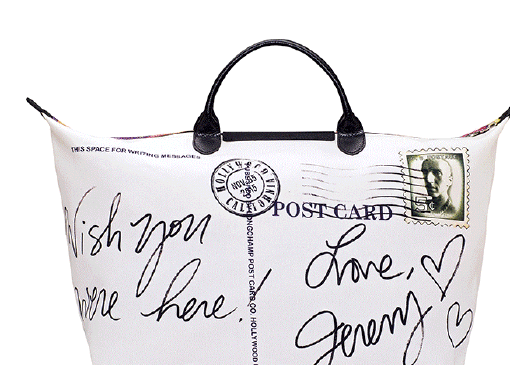 THIS SPACE FOR WRITING MESSAGES
HOLLYWOOD
NOV 05
2015
POST CARD
Wish you
were here!
Love,
Jeremy
LONGCHAMP POST CARD CO. HOLLYWOOD